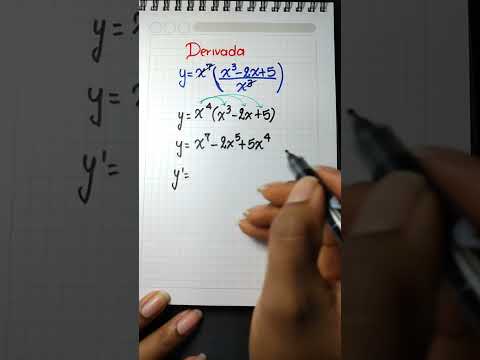 Derivada
y=x⁷(x³-2x+5/x³)
y=x⁴(x³-2x+5)
y=x⁷-2x⁵+5x⁴
y'=